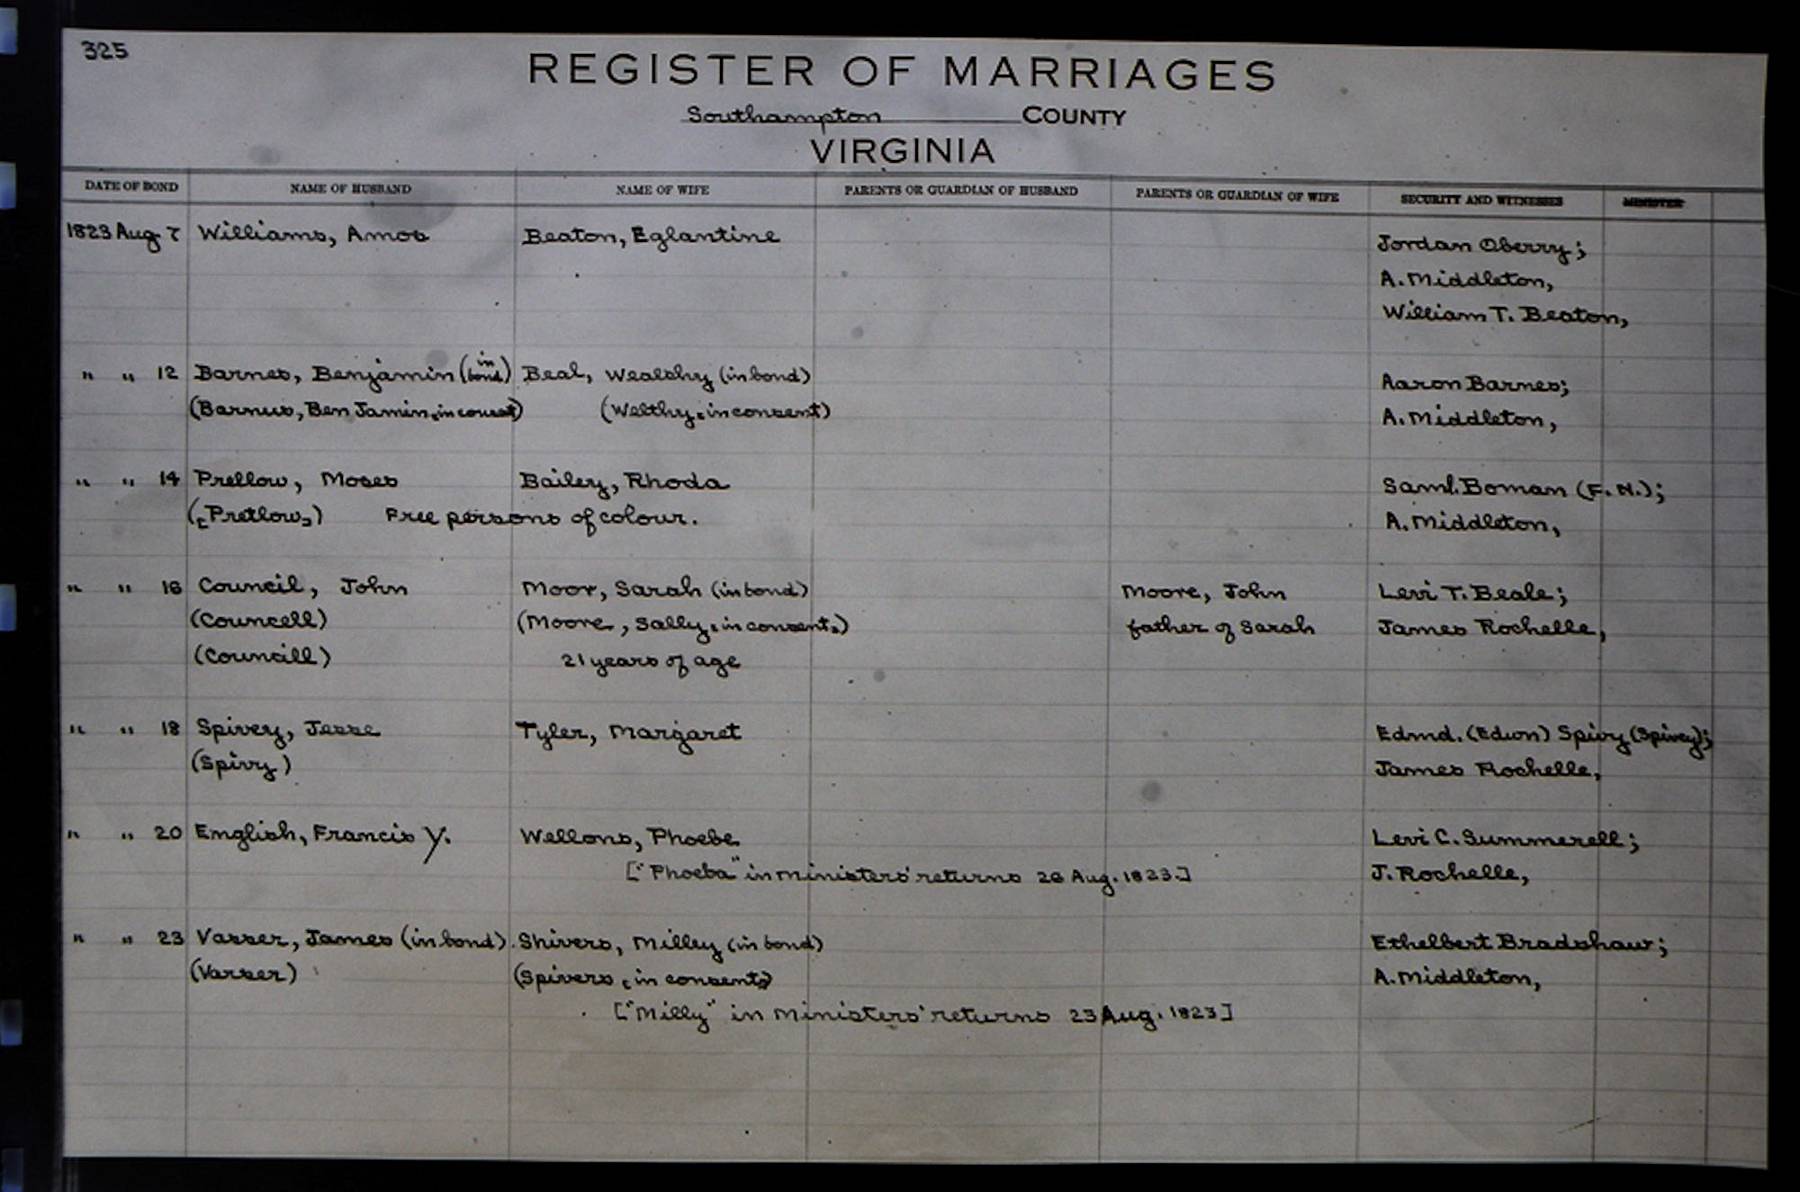 325
REGISTER OF MARRIAGES
Southampton COUNTY
VIRGINIA
DATE OF BOND NAME OF HUSBAND NAME OF WIFE PARENTS OR GUARDIAN OF HUSBAND PARENTS OR GUARDIAN OF WIFE SECURITY AND WITNESSES MINISTER
1823 Aug. 7 Williams, Amos Beaton, Eglantine Jordan Oberry;
A. Middleton,
William T. Beaton,
" " 12 Barnes, Benjamin (in bond) Beal, Wealshy (in bond) Aaron Barnes;
(Barnus, Ben Jamin, in consent) (Welthy, in consent) A. Middleton,
" " 14 Prellow, Moses Bailey, Rhoda Saml. Boman (F. N.);
([Pretlow]) Free persons of colour. A. Middleton,
" " 16 Council, John Moor, Sarah (in bond) Moore, John Levi T. Beale;
(Councell) (Moore, Sally [in consent]) father of Sarah James Rochelle,
(Councill) 21 years of age
" " 18 Spivey, Jesse Tyler, Margaret Edmd. (Edwn) Spivy (Spivey);
(Spivy) James Rochelle,
" " 20 English, Francis Y. Wellons, Phoebe Levi C. Summerell;
["Phoeba" in ministers' returns 28 Aug. 1823.] J. Rochelle,
" " 23 Vasser, James (in bond). Shivers, Milley (in bond) Ethelbert Bradshaw;
(Varser) (Spivers [in consent]) A. Middleton,
["Milly" in Ministers' returns 23 Aug. 1823]